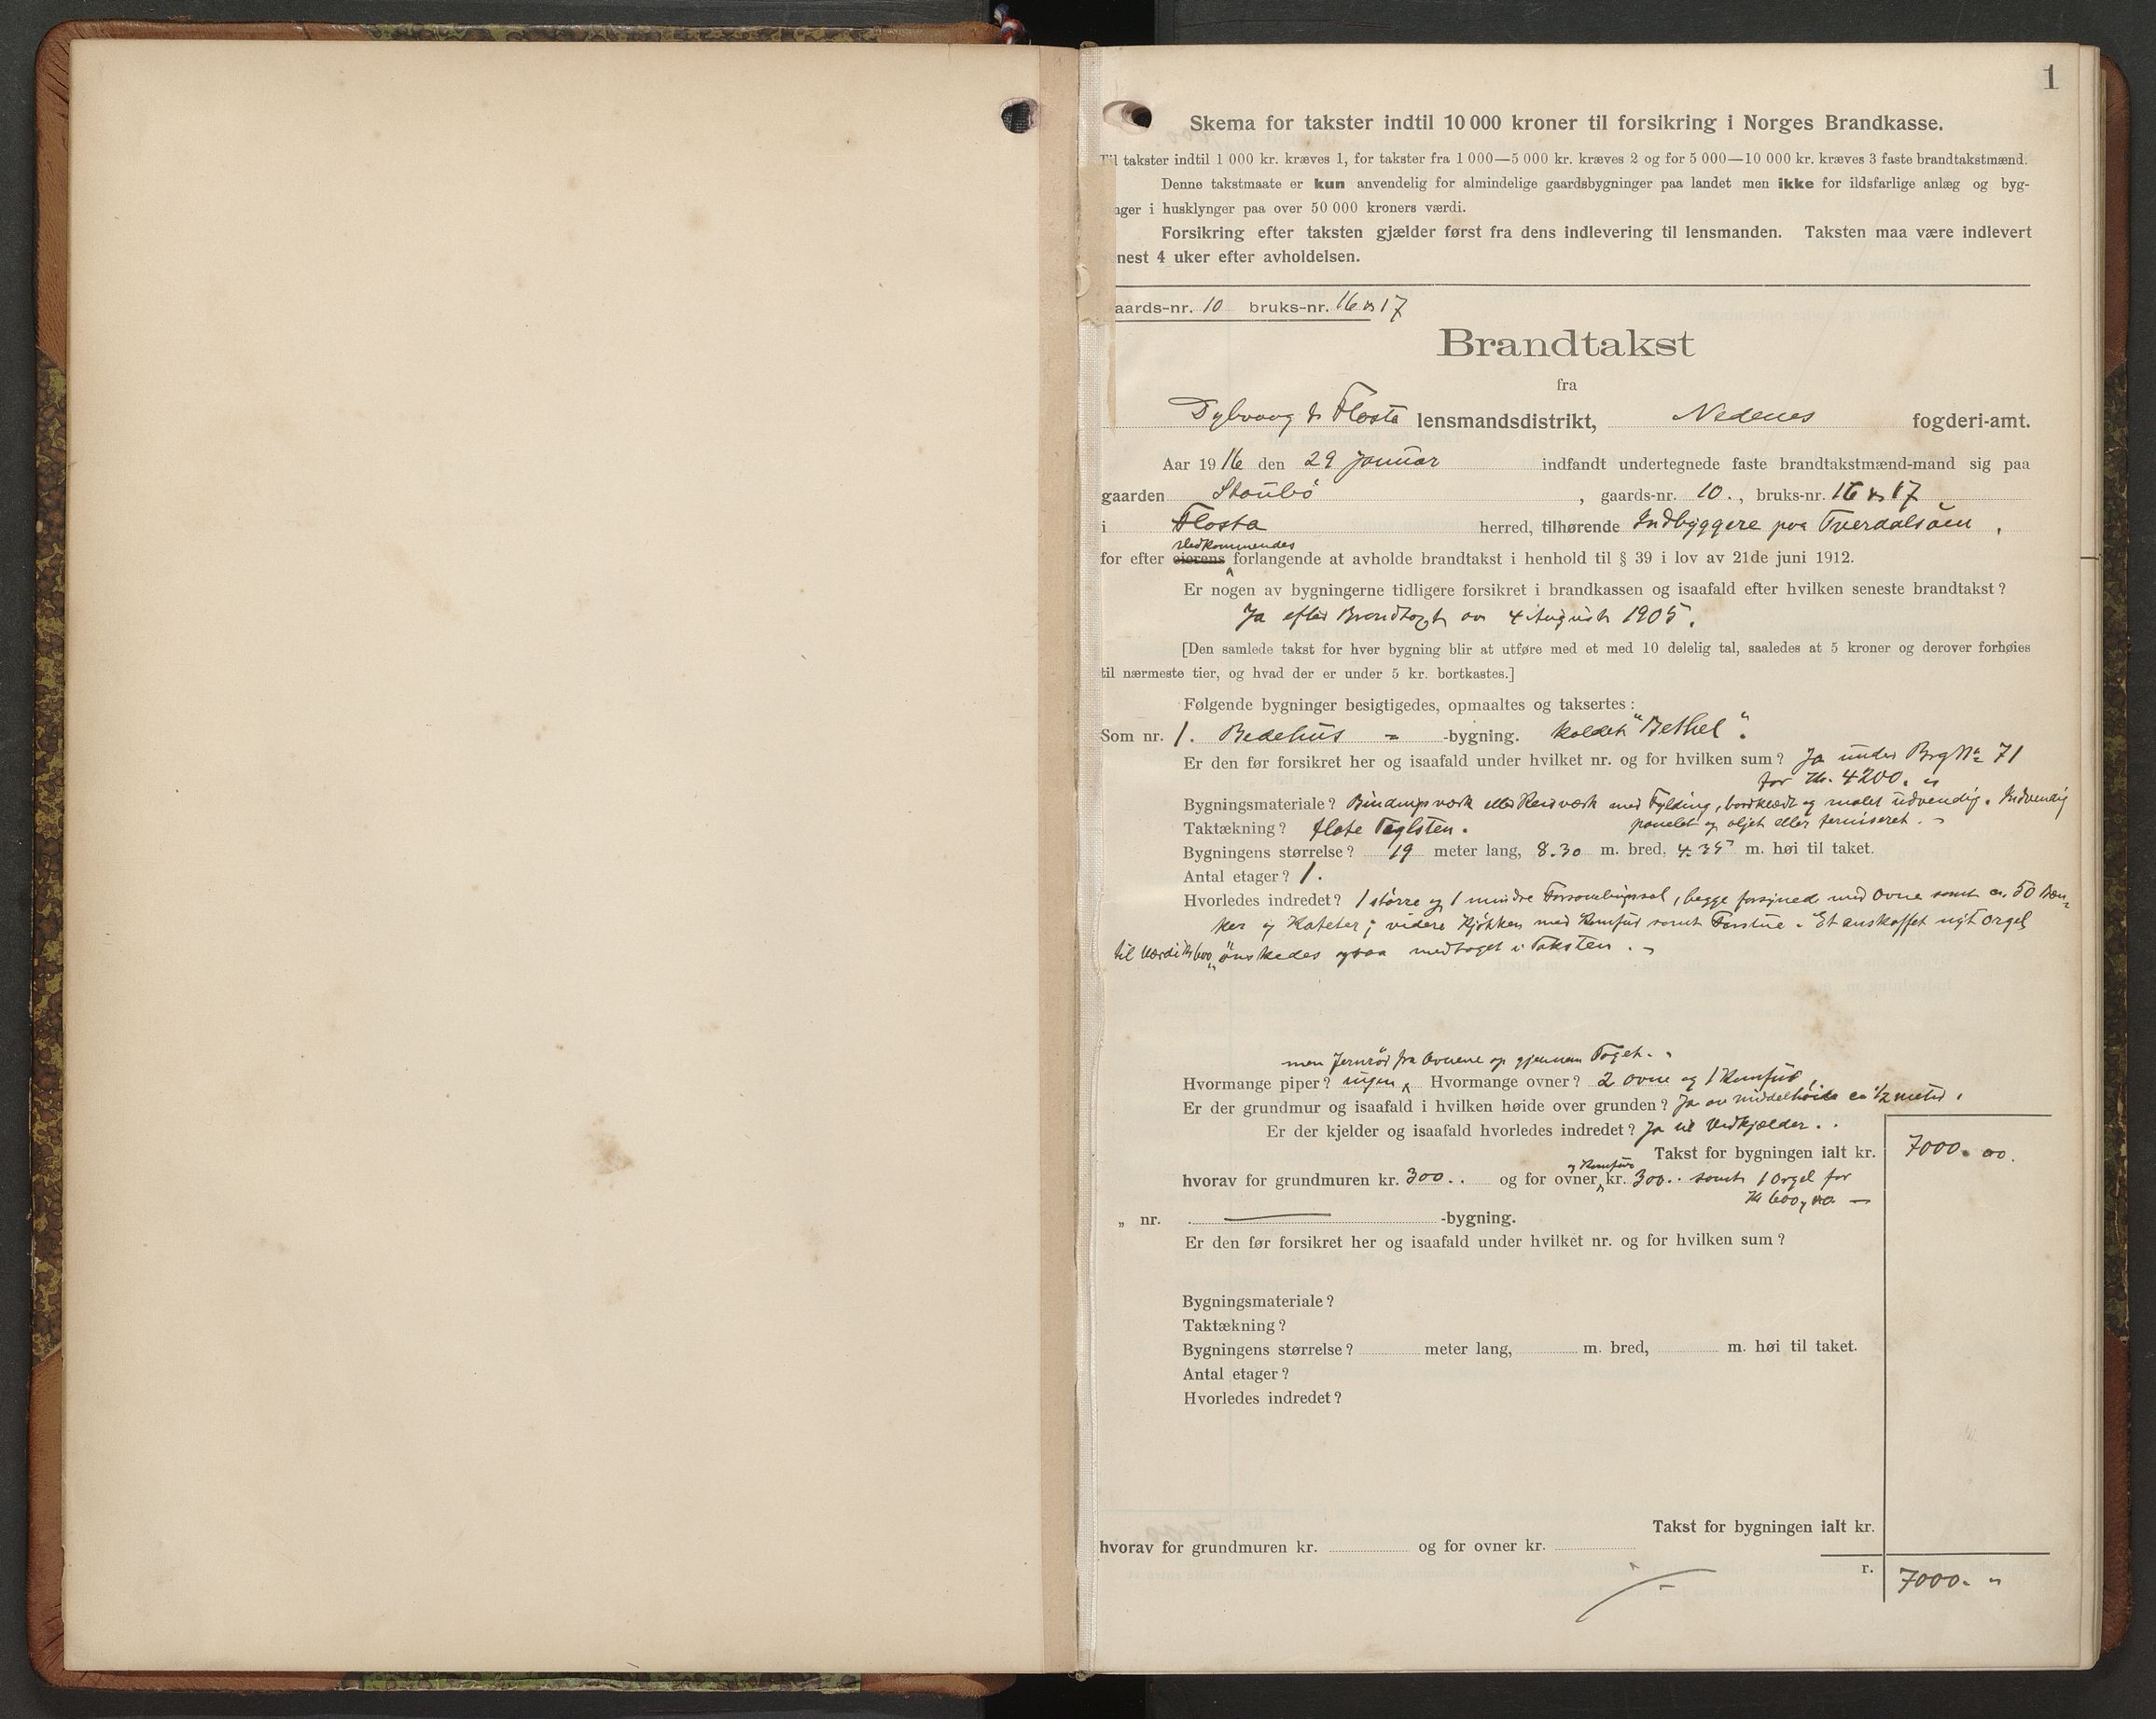 1
Skema for takster indtil 10 000 kroner til forsikring i Norges Brandkasse.
Til takster indtil 1 000 kr. kræves 1, for takster fra 1 000—5 000 kr. kræves 2 og for 5 000—10 000 kr. kræves 3 faste brandtakstmænd.
Denne takstmaate er kun anvendelig for almindelige gaardsbygninger paa landet men ikke for ildsfarlige anlæg og byg-
nger i husklynger paa over 50 000 kroners værdi.
Forsikring efter taksten gjælder først fra dens indlevering til lensmanden. Taksten maa være indlevert
nest 4 uker efter avholdelsen.
aards-nr. 10 bruks-nr. 16 & 17
Brandtakst
fra
Dybvaag & Flosta lensmandsdistrikt, Nedenes fogderi-amt.
Aar 1916 den 29 Januar indfandt undertegnede faste brandtakstmænd-mand sig paa
gaarden Staubö , gaards-nr. 10. , bruks-nr. 16 & 17
i Flosta herred, tilhørende Indbyggere paa Tverdalsöen .
Vedkommendes
for efter eierens forlangende at avholde brandtakst i henhold til § 39 i lov av 21de juni 1912.
Er nogen av bygningerne tidligere forsikret i brandkassen og isaafald efter hvilken seneste brandtakst?
Ja efter Brandtaxt av 4 August 1905.
[Den samlede takst for hver bygning blir at utføre med et med 10 delelig tal, saaledes at 5 kroner og derover forhøies
til nærmeste tier, og hvad der er under 5 kr. bortkastes.]
Følgende bygninger besigtigedes, opmaaltes og taksertes:
Som nr. 1. Bedehus - -bygning. kaldet "Bethel".
Er den før forsikret her og isaafald under hvilket nr. og for hvilken sum? Ja under Brg No 71
for Kr. 4200. "
Bygningsmateriale? Bindingsværk eller Reisværk med Fylding, bordklædt og malet udvendig. Indvendig
panelet og oljet eller ferniseret. -
Taktækning? flate Teglsten.
Bygningens størrelse? 19 meter lang, 8.30 m. bred, 4.35 m. høi til taket.
Antal etager? 1.
Hvorledes indredet? 1 större og 1 mindre Forsamlingssal, begge forsyned med Ovne samt ca. 50 Bæn-
ker og Kateter; videre Kjökken med Komfur samt Forstue. Et anskaffet nyt Orgel
til Værdi Kr 600,, önskedes ogsaa medtaget i Taksten. -
men Jernrör fra Ovnene op gjennem Taget. -
Hvormange piper? ingen Hvormange ovner? 2 ovne og 1 Komfur,
Er der grundmur og isaafald i hvilken høide over grunden? Ja av middelhöide ca 1/2 meter.
Er der kjelder og isaafald hvorledes indredet? Ja til Vedkjælder. .
Takst for bygningen ialt kr. 7000. 00.
og Komfur
hvorav for grundmuren kr. 300 . . og for ovner kr. 300 . . samt 1 Orgel for
Kr 600, 00 —
„ nr. -bygning.
Er den før forsikret her og isaafald under hvilket nr. og for hvilken sum?
Bygningsmateriale?
Taktækning?
Bygningens størrelse? meter lang, m. bred, m. høi til taket.
Antal etager?
Hvorledes indredet?
Takst for bygningen ialt kr.
hvorav for grundmuren kr. og for ovner kr.
r. 7000. "